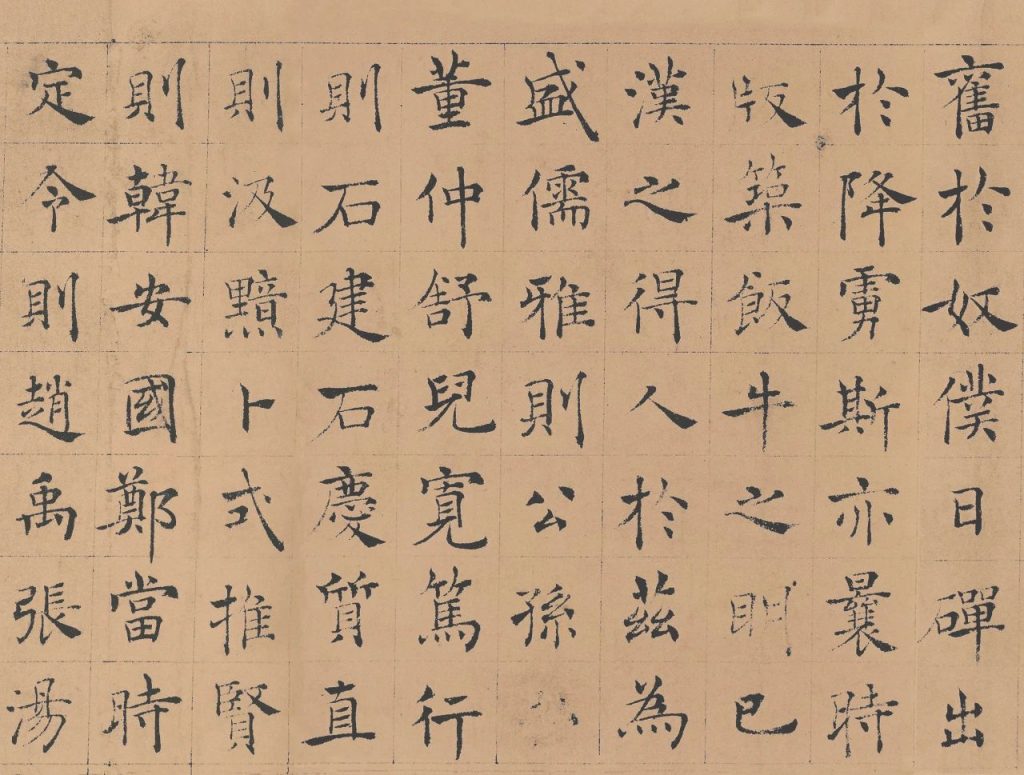 舊於奴僕日磾出
於降虜斯亦曩時
版築飯牛之明已
漢之得人於茲為
盛儒雅則公孫
董仲舒兒寬篤行
則石建石慶質直
則汲黯卜式推賢
則韓安國鄭當時
定令則趙禹張湯